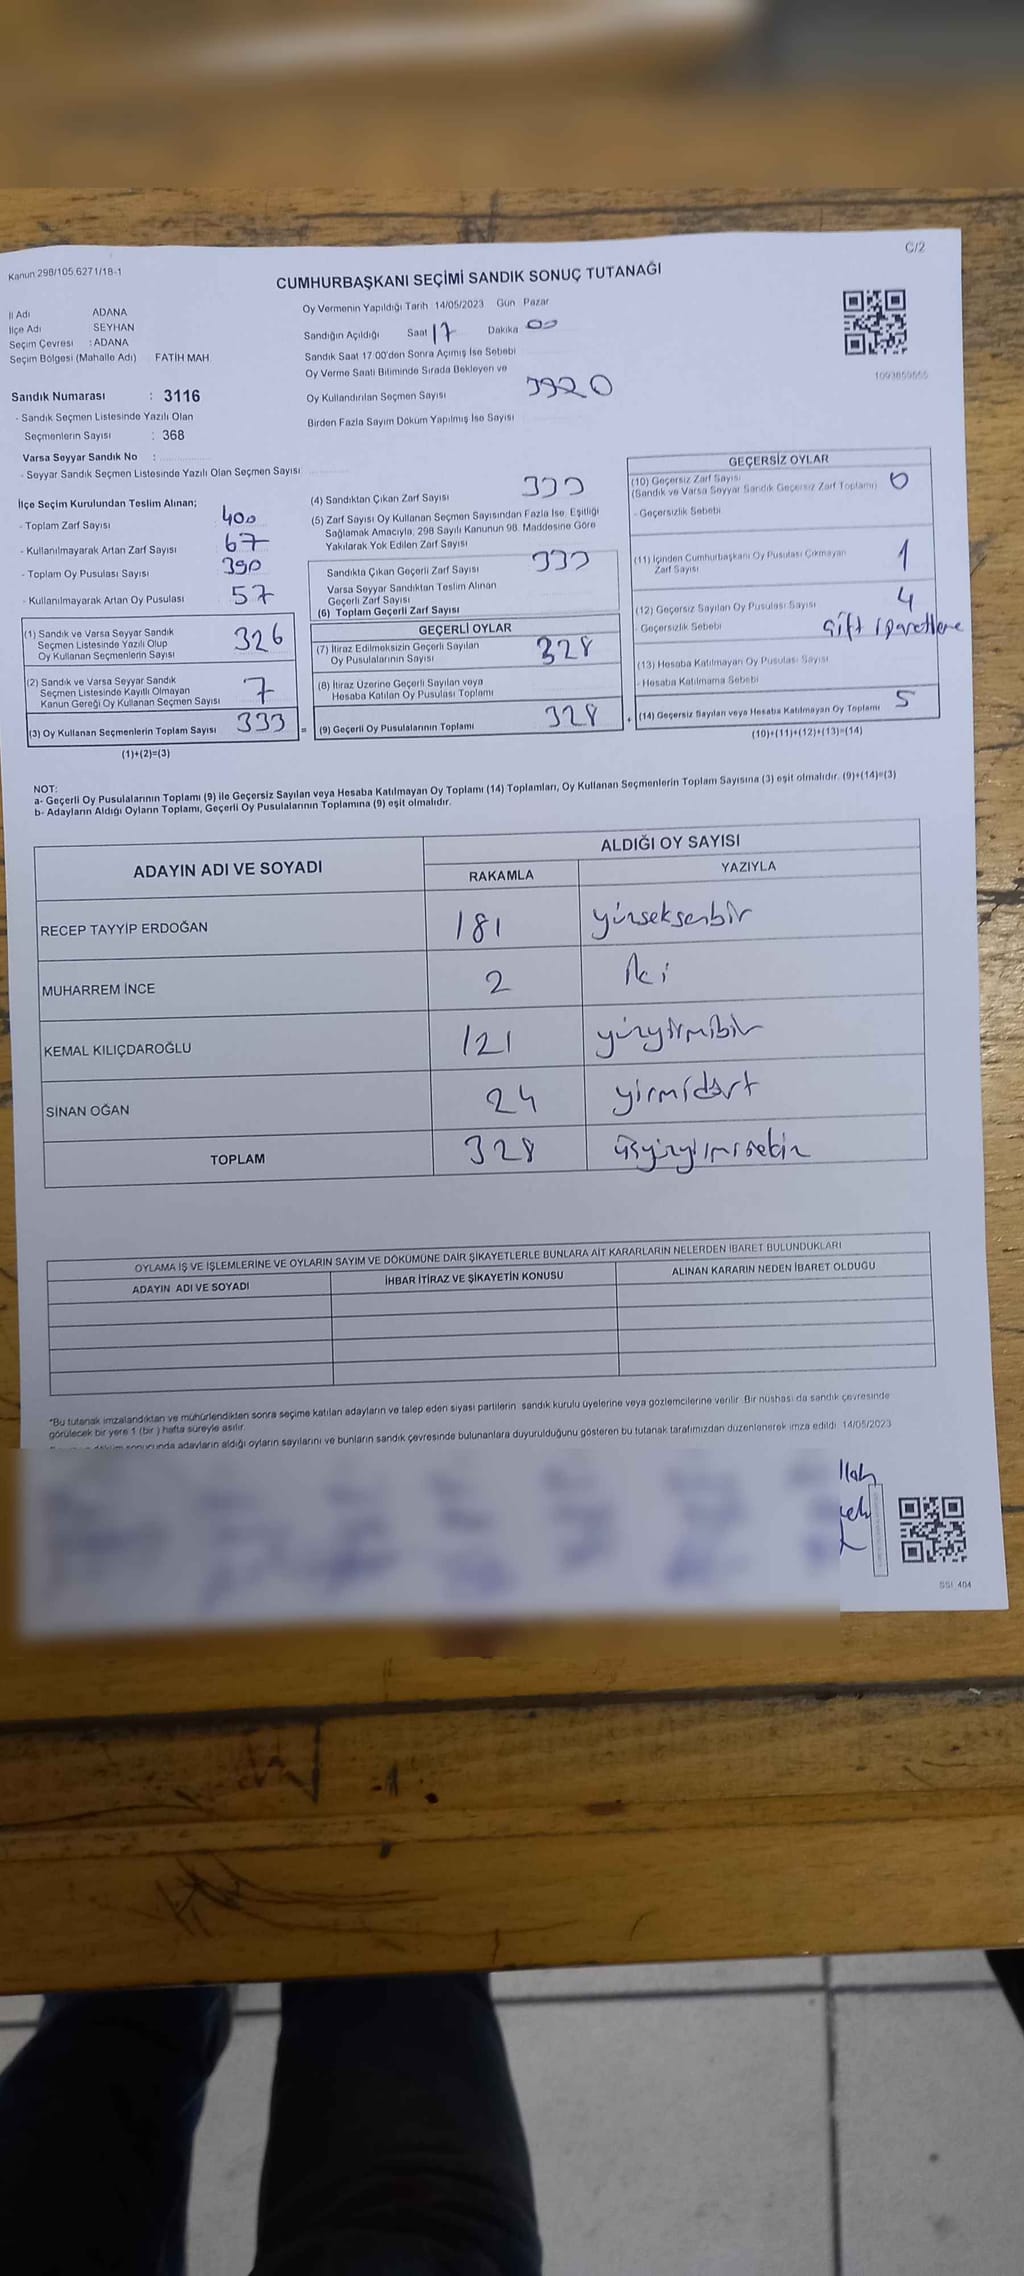 C/2
Kanun 298/105,6271/18-1
CUMHURBAŞKANI SEÇİMİ SANDIK SONUÇ TUTANAĞI
İl Adı ADANA
İlçe Adı SEYHAN
Seçim Çevresi : ADANA
Seçim Bölgesi (Mahalle Adı) FATİH MAH.
Sandık Numarası : 3116
- Sandık Seçmen Listesinde Yazılı Olan
Seçmenlerin Sayısı : 368
Varsa Seyyar Sandık No :
- Seyyar Sandık Seçmen Listesinde Yazılı Olan Seçmen Sayısı
Oy Vermenin Yapıldığı Tarih 14/05/2023 Gün Pazar
Sandığın Açıldığı Saat 17 Dakika 00
Sandık Saat 17 00'den Sonra Açımış İse Sebebi
Oy Verme Saati Bitiminde Sırada Bekleyen ve
Oy Kullandırılan Seçmen Sayısı
Birden Fazla Sayım Döküm Yapılmış İse Sayısı
1093859555
İlçe Seçim Kurulundan Teslim Alınan;
- Toplam Zarf Sayısı 400
- Kullanılmayarak Artan Zarf Sayısı 67
- Toplam Oy Pusulası Sayısı 390
- Kullanılmayarak Artan Oy Pusulası 57
(1) Sandık ve Varsa Seyyar Sandık
Seçmen Listesinde Yazılı Olup
Oy Kullanan Seçmenlerin Sayısı 326
(2) Sandık ve Varsa Seyyar Sandık
Seçmen Listesinde Kayıtlı Olmayan
Kanun Gereği Oy Kullanan Seçmen Sayısı 7
(3) Oy Kullanan Seçmenlerin Toplam Sayısı 333 =
(1)+(2)=(3)
(4) Sandıktan Çıkan Zarf Sayısı 333
(5) Zarf Sayısı Oy Kullanan Seçmen Sayısından Fazla İse, Eşitliği
Sağlamak Amacıyla, 298 Sayılı Kanunun 98. Maddesine Göre
Yakılarak Yok Edilen Zarf Sayısı
Sandıkta Çıkan Geçerli Zarf Sayısı 333
Varsa Seyyar Sandıktan Teslim Alınan
Geçerli Zarf Sayısı
(6) Toplam Geçerli Zarf Sayısı
GEÇERLİ OYLAR
(7) İtiraz Edilmeksizin Geçerli Sayılan
Oy Pusulalarının Sayısı 328
(8) İtiraz Üzerine Geçerli Sayılan veya
Hesaba Katılan Oy Pusulası Toplamı
(9) Geçerli Oy Pusulalarının Toplamı 328 +
GEÇERSİZ OYLAR
(10) Geçersiz Zarf Sayısı 0
(Sandık ve Varsa Seyyar Sandık Geçersiz Zarf Toplamı)
- Geçersizlik Sebebi
(11) İçinden Cumhurbaşkanı Oy Pusulası Çıkmayan
Zarf Sayısı 1
(12) Geçersiz Sayılan Oy Pusulası Sayısı 4
- Geçersizlik Sebebi Çift işaretleme
(13) Hesaba Katılmayan Oy Pusulası Sayısı
- Hesaba Katılmama Sebebi
(14) Geçersiz Sayılan veya Hesaba Katılmayan Oy Toplamı 5
(10)+(11)+(12)+(13)=(14)
NOT:
a- Geçerli Oy Pusulalarının Toplamı (9) ile Geçersiz Sayılan veya Hesaba Katılmayan Oy Toplamı (14) Toplamları, Oy Kullanan Seçmenlerin Toplam Sayısına (3) eşit olmalıdır. (9)+(14)=(3)
b- Adayların Aldığı Oyların Toplamı, Geçerli Oy Pusulalarının Toplamına (9) eşit olmalıdır.
ADAYIN ADI VE SOYADI ALDIĞI OY SAYISI
RAKAMLA YAZIYLA
RECEP TAYYİP ERDOĞAN 181 yüzseksenbir
MUHARREM İNCE 2 İki
KEMAL KILIÇDAROĞLU 121 yüzyirmibir
SİNAN OĞAN 24 yirmidört
TOPLAM 328 üçyüzyirmisekiz
OYLAMA İŞ VE İŞLEMLERİNE VE OYLARIN SAYIM VE DÖKÜMÜNE DAİR ŞİKAYETLERLE BUNLARA AİT KARARLARIN NELERDEN İBARET BULUNDUKLARI
ADAYIN ADI VE SOYADI İHBAR İTİRAZ VE ŞİKAYETİN KONUSU ALINAN KARARIN NEDEN İBARET OLDUĞU
*Bu tutanak imzalandıktan ve mühürlendikten sonra seçime katılan adayların ve talep eden siyasi partilerin sandık kurulu üyelerine veya gözlemcilerine verilir. Bir nüshası da sandık çevresinde
görülecek bir yere 1 (bir) hafta süreyle asılır.
sonucunda adayların aldığı oyların sayılarını ve bunların sandık çevresinde bulunanlara duyurulduğunu gösteren bu tutanak tarafımızdan düzenlenerek imza edildi. 14/05/2023
SSI. 404